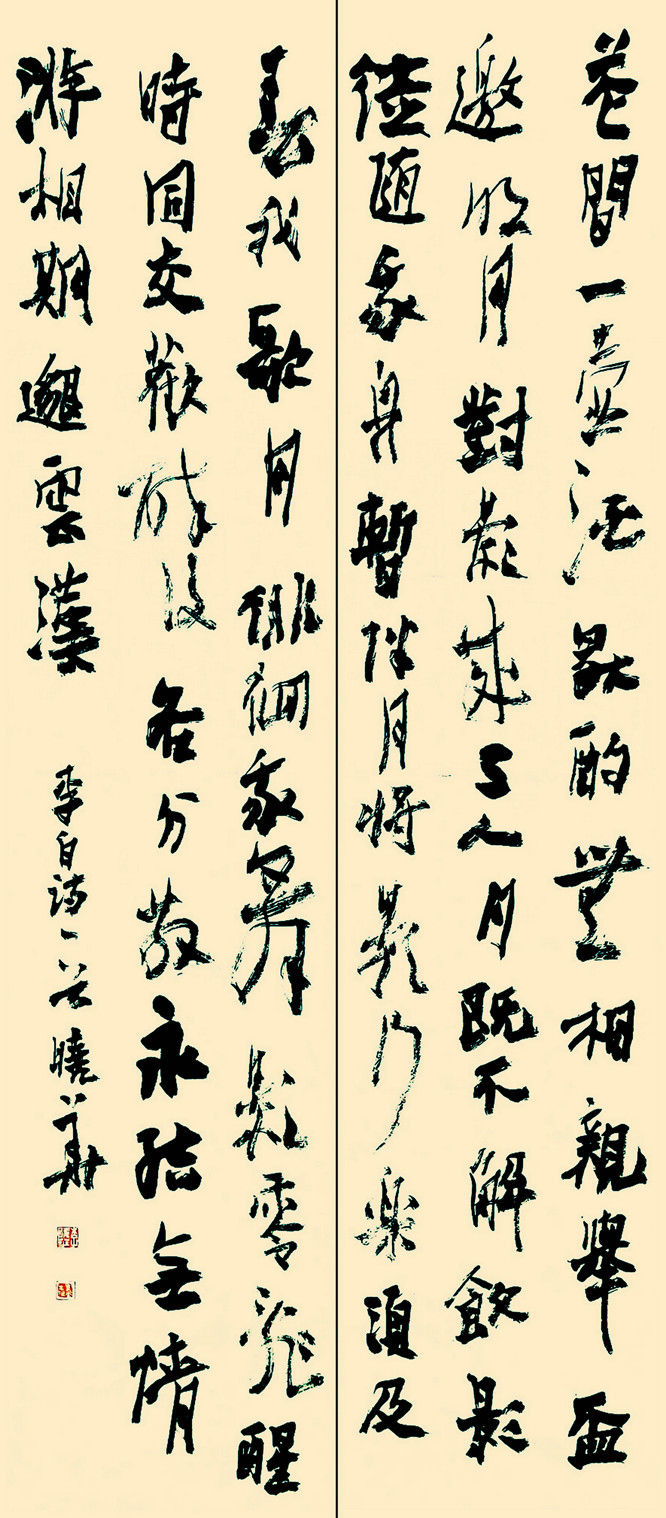 花間一壺酒獨酌無相親舉盃
邀明月對影成三人月既不解飲影
徒隨我身暫伴月將影行樂須及
春我歌月徘徊我舞影零亂醒
時同交歡醉後各分散永結無情
游相期邈雲漢
李白詩一首曉華